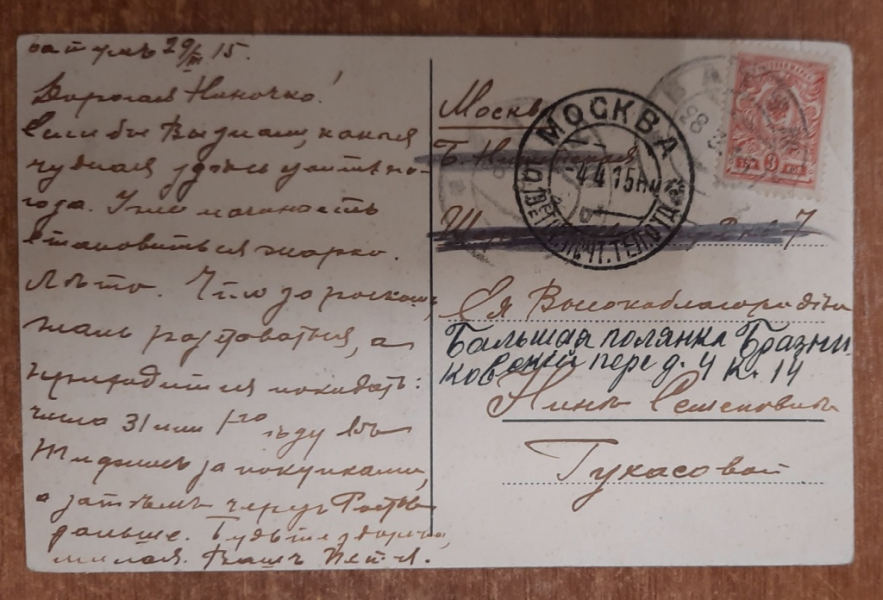 Батумъ 29/III 15.
Дорогая Ниночка!
Если бы Вы знали, какая
чудная здесь уже по-
года. Уже
становиться жарко.
Лѣто. Что за роскошь,
жаль разставаться, а
приходится покидать:
числа 31 или 1го ѣду въ
Тифлисъ за покупками,
а затѣмъ черезъ Ростовъ
дальше. Будьте здоровы,
милая. Вашъ Петя.
Москва
Б.
7
Ея Высокоблагородію
Бальшая полянка Бразни
ковский пер д. 4 к. 14
Нинѣ Семеновнѣ
Гукасовой
МОСКВА
4 4 15
3 КОП